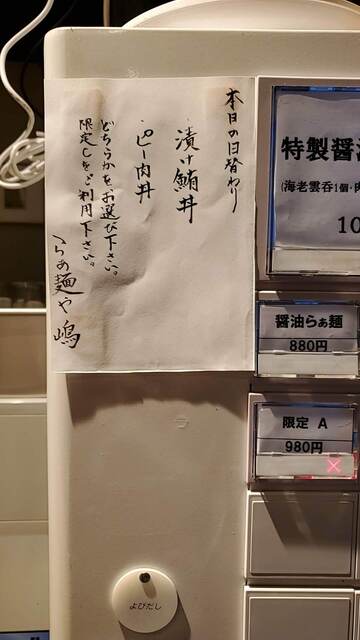 本日の日替わり
漬け鮪丼
ピー肉丼
どちらかをお選び下さい。
限定Cをご利用下さい。
らぁ麺や 嶋
特製醤
(海老雲呑1個・肉
10
醤油らぁ麺
880円
限定 A
980円
よびだし